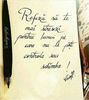 Refuză să te
mai stresezi
pentru lucruri pe
care nu le poți
controla sau
schimba!